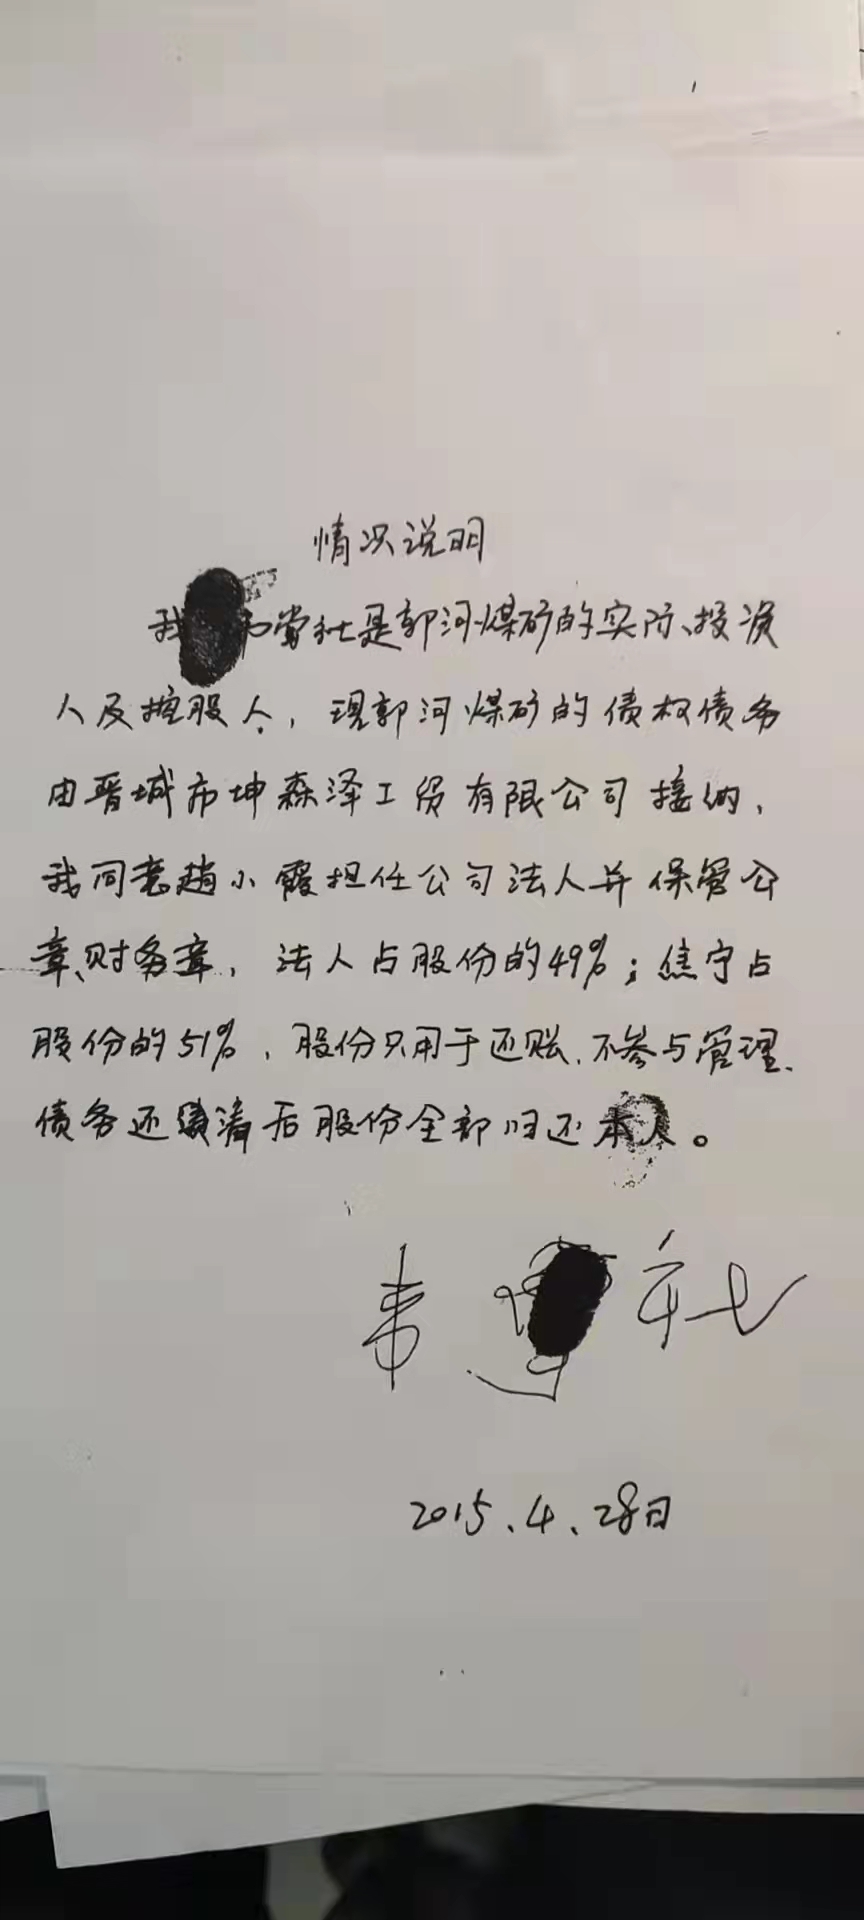 情况说明
我 常社是郭河煤矿的实际、投资
人及控股人，现郭河煤矿的债权债务
由晋城市坤森泽工贸有限公司接纳，
我同意赵小霞担任公司法人并保管公
章、财务章，法人占股份的49%；焦宁占
股份的51%，股份只用于还账，不参与管理.
债务还清后股份全部归还本人。
社
2015.4.28日